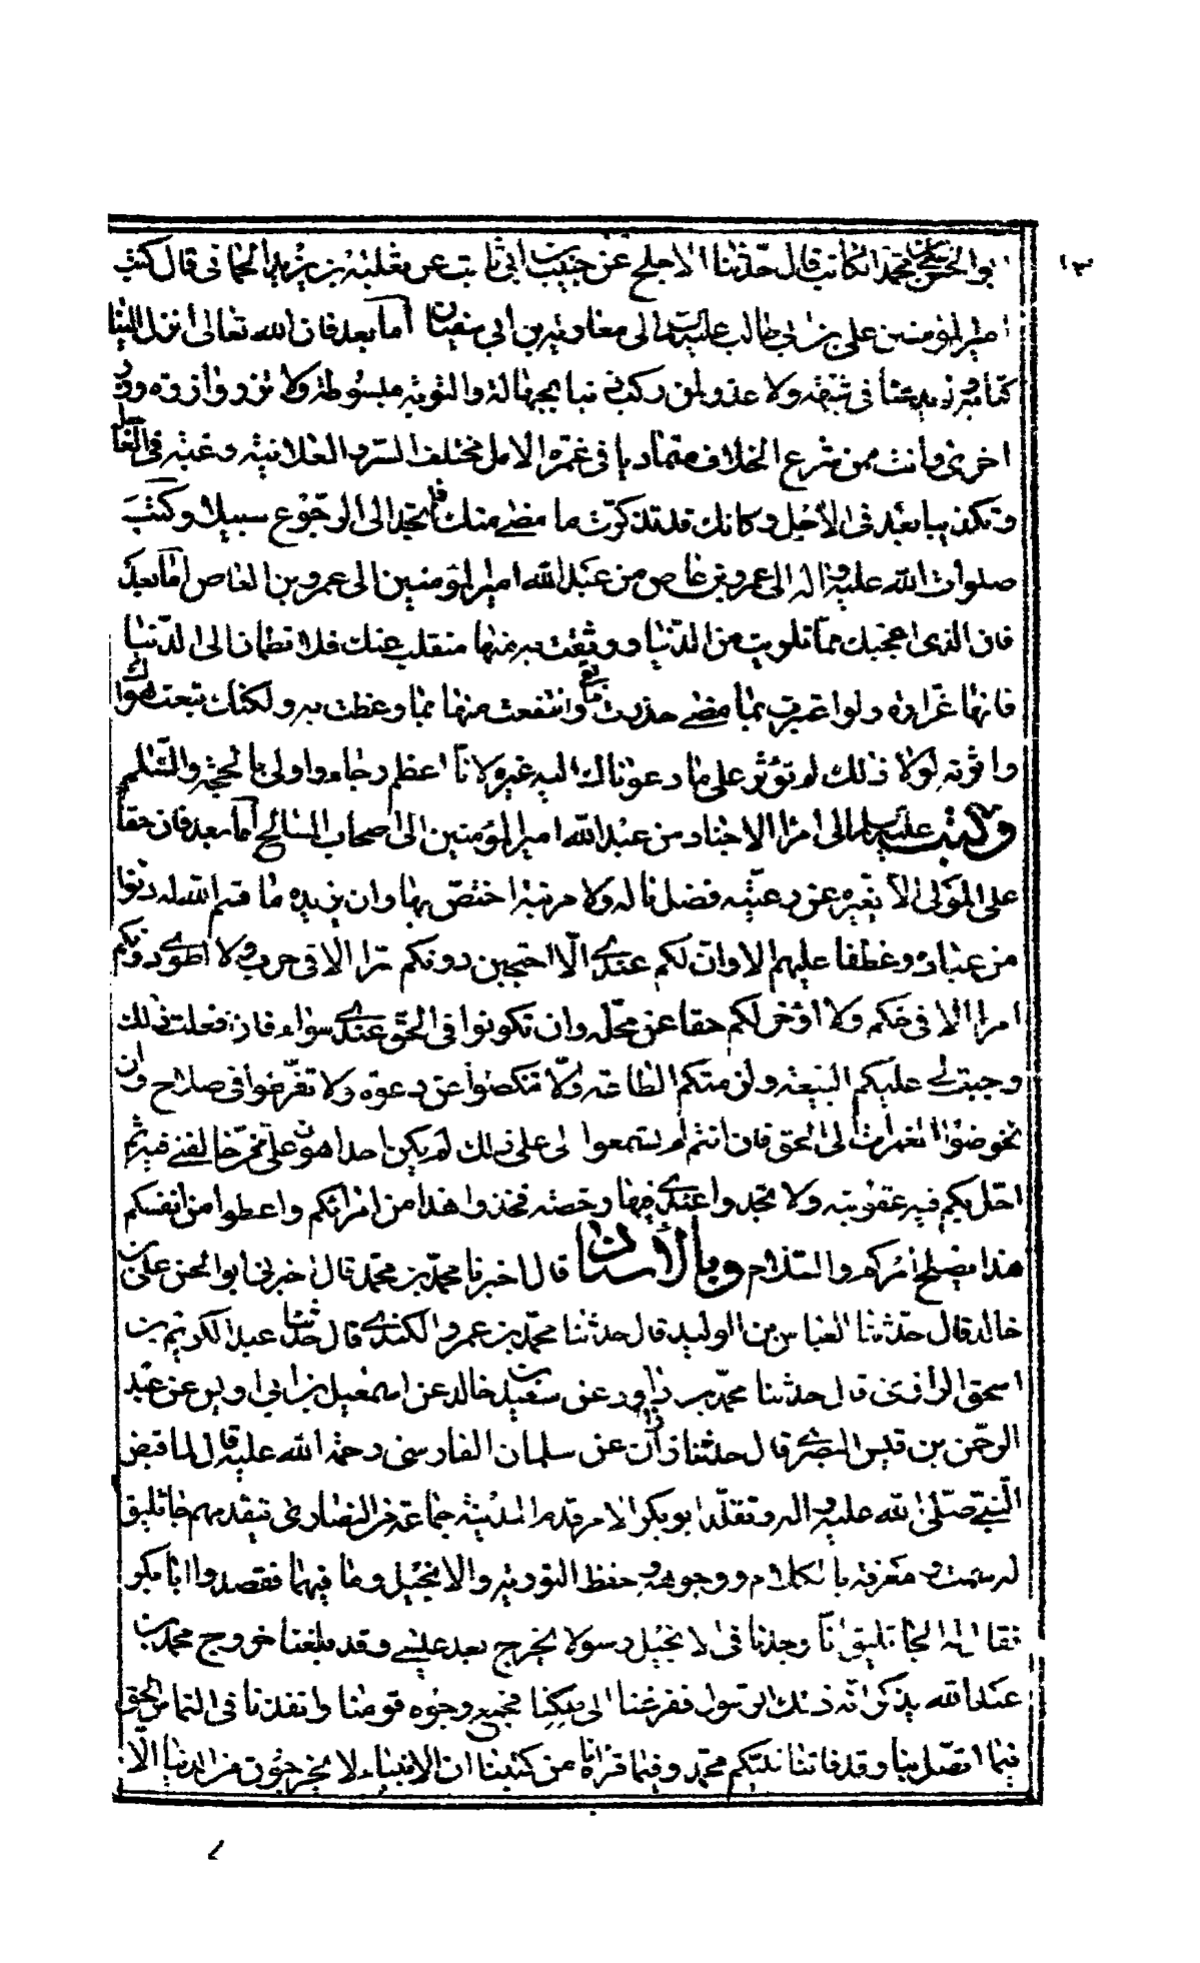 ابو الحسن علي بن محمد الكاتب قال حدثنا الاجلح عن حبيب بن ابي ثابت عن ثعلبة بن يزيد الحماني قال كتب
امير المؤمنين علي بن ابي طالب عليه السلم الى معاوية بن ابي سفيان اما بعد فان الله تعالى انزل الينا
كتابه ولم يدعنا في شبهة ولا عذر لمن ركب ذنبا بجهالة والتوبة مبسوطة ولا تزر وازرة وزر
اخرى وانت ممن شرع الخلاف متماديا في غمرة الامل مختلف السر والعلانية رغبة في العاجل
وتكذيبا بعد في الاجل وكانك قد تذكرت ما مضى منك فلم تجد الى الرجوع سبيلا وكتب
صلوات الله عليه واله الى عمرو بن عاص من عبد الله امير المؤمنين الى عمرو بن العاص اما بعد
فان الذي اعجبك مما تلويت من الدنيا ووثقت به منها منقلب عنك فلا تطمئن الى الدنيا
فانها غرارة ولو اعتبرت بما مضى حذرت ما بقي وانتفعت منها بما وعظت به ولكنك تبعت هواك
واثرته لولا ذلك لم تؤثر على ما دعوناك اليه غيره لانا اعظم رجاء واولى بالحجة والسلم
وكتب عليه السلم الى امراء الاجناد من عبد الله امير المؤمنين الى اصحاب المسالح اما بعد فان حقا
على المولى الا يغيره عن رعيته فضل ناله ولا مرتبة اختص بها وان يزيده ما قسم الله له دنوا
من عباده وعطفا عليهم الا وان لكم عندي الا احتجبن دونكم سرا الا في حرب ولا اطوي دونكم
امرا الا في حكم ولا اؤخر لكم حقا عن محله وان تكونوا في الحق عندي سواء فاذا فعلت ذلك
وجبت لي عليكم البيعة ولزمتكم الطاعة والا تنكصوا عن دعوة ولا تفرطوا في صلاح وان
تخوضوا الغمرات الى الحق فان انتم لم تسمعوا لي على ذلك لم يكن احد اهون علي ممن خالفني فيه ثم
احل بكم فيه عقوبته ولا تجدوا عندي فيها رخصة فخذوا هذا من امرائكم واعطوا من انفسكم
هذا يصلح امركم والسلام وبالاسناد قال اخبرنا محمد بن محمد قال اخبرني ابو الحسن علي بن
خالد قال حدثنا العباس بن الوليد قال حدثنا محمد بن عمرو الكندي قال حدثنا عبد الكريم بن
اسحق الرازي قال حدثنا محمد بن داود عن سعيد بن خالد عن اسمعيل بن ابي اويس عن عبد
الرحمن بن قيس البصري قال حدثنا زاذان عن سلمان الفارسي رحمة الله عليه قال لما قبض
النبي صلى الله عليه واله وتقلد ابو بكر الامر قدم المدينة جماعة من النصارى يتقدمهم جاثليق
له سمت ومعرفة بالكلام ووجوهه وحفظ التورية والانجيل وما فيهما فقصدوا ابا بكر
فقال له الجاثليق انا وجدنا في الانجيل رسولا يخرج بعد عيسى وقد بلغنا خروج محمد بن
عبد الله يذكر انه ذلك الرسول ففزعنا الى ملكنا فجمع وجوه قومنا وانفذنا في التماس الحق
فيما اتصل بنا وقد فاتنا نبيكم محمد وفيما قراناه من كتبنا ان الانبياء لا يخرجون من الدنيا الا